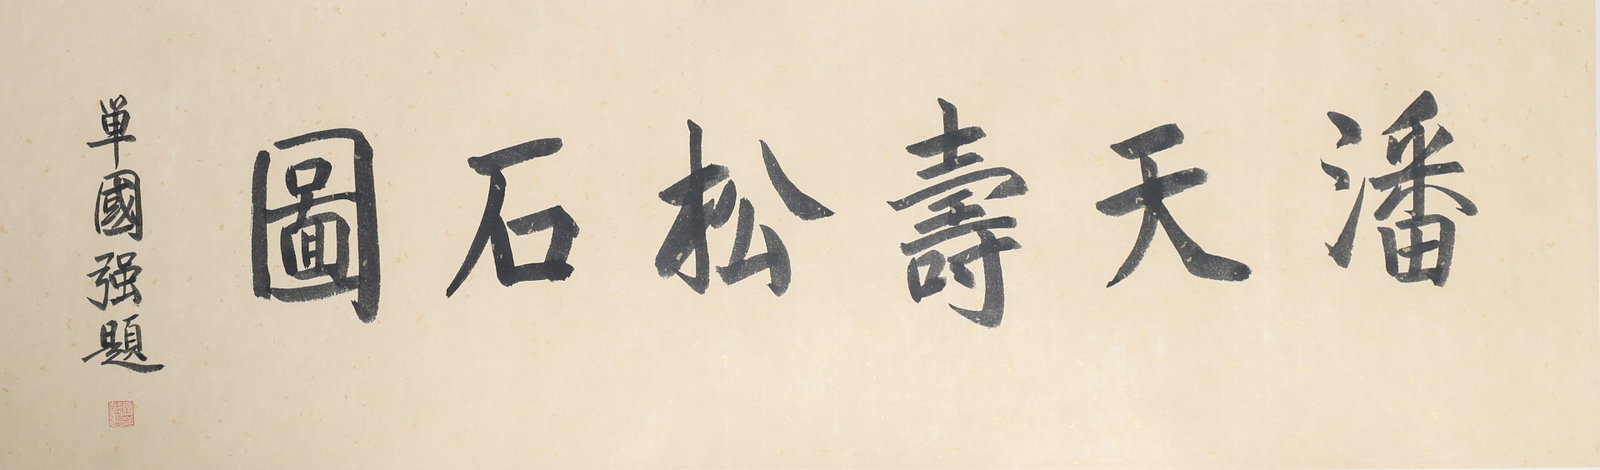 潘天壽松石圖
単國强題